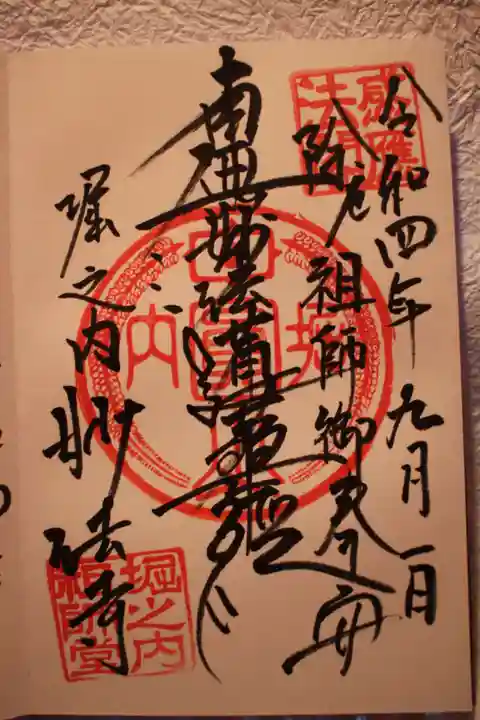 令和四年九月一日
除厄祖師御奉安
南無妙法蓮華経
堀之内妙法寺
堀之内
祖師堂
堀
内